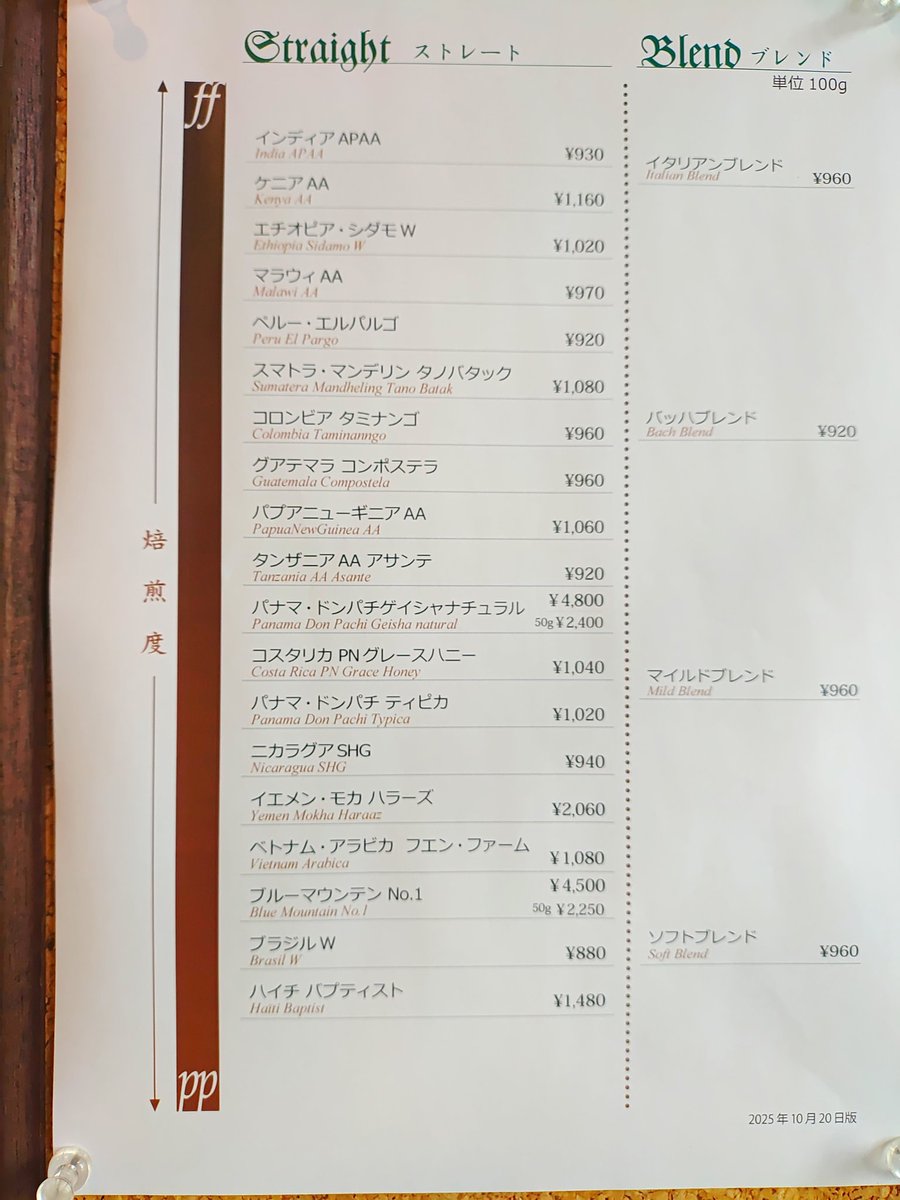 Straight ストレート
Blend ブレンド
単位 100g
ff
焙煎度
pp
インディア APAA
India APAA
¥930
ケニア AA
Kenya AA
¥1,160
エチオピア・シダモ W
Ethiopia Sidamo W
¥1,020
マラウィ AA
Malawi AA
¥970
ペルー・エルパルゴ
Peru El Pargo
¥920
スマトラ・マンデリン タノバタック
Sumatera Mandheling Tano Batak
¥1,080
コロンビア タミナンゴ
Colombia Taminanngo
¥960
グアテマラ コンポステラ
Guatemala Compostela
¥960
パプアニューギニア AA
PapuaNewGuinea AA
¥1,060
タンザニア AA アサンテ
Tanzania AA Asante
¥920
パナマ・ドンパチゲイシャナチュラル ¥4,800
Panama Don Pachi Geisha natural 50g ¥2,400
コスタリカ PN グレースハニー
Costa Rica PN Grace Honey
¥1,040
パナマ・ドンパチ ティピカ
Panama Don Pachi Typica
¥1,020
ニカラグア SHG
Nicaragua SHG
¥940
イエメン・モカ ハラーズ
Yemen Mokha Haraaz
¥2,060
ベトナム・アラビカ フエン・ファーム
Vietnam Arabica
¥1,080
ブルーマウンテン No.1 ¥4,500
Blue Mountain No.1 50g ¥2,250
ブラジル W
Brasil W
¥880
ハイチ バプティスト
Haïti Baptist
¥1,480
イタリアンブレンド
Italian Blend
¥960
バッハブレンド
Bach Blend
¥920
マイルドブレンド
Mild Blend
¥960
ソフトブレンド
Soft Blend
¥960
2025 年 10 月 20 日版